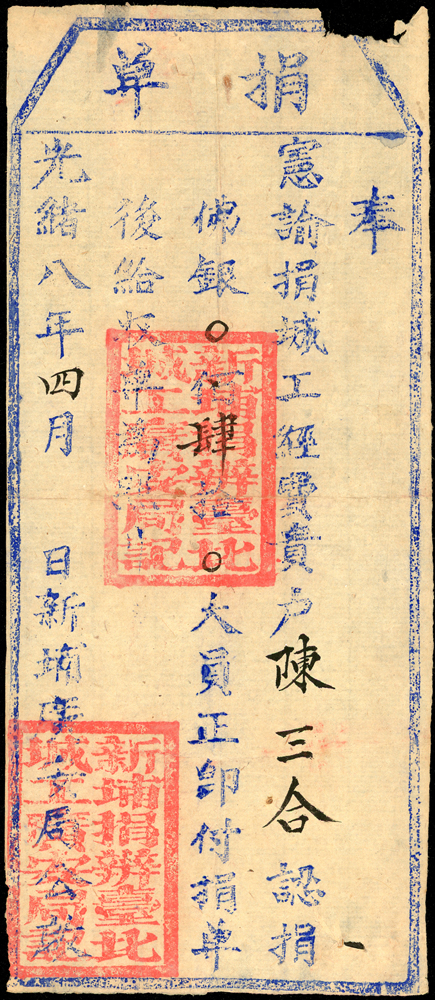 捐單
奉
憲諭捐城工經費貴戶陳三合認捐
佛銀○佰肆拾○大員正卽付捐單
後給收單為照
光緒八年四月 日新埔廣安局公啟
新埔捐辦臺北
城工廣安局記
新埔捐辦臺北
城工廣安局